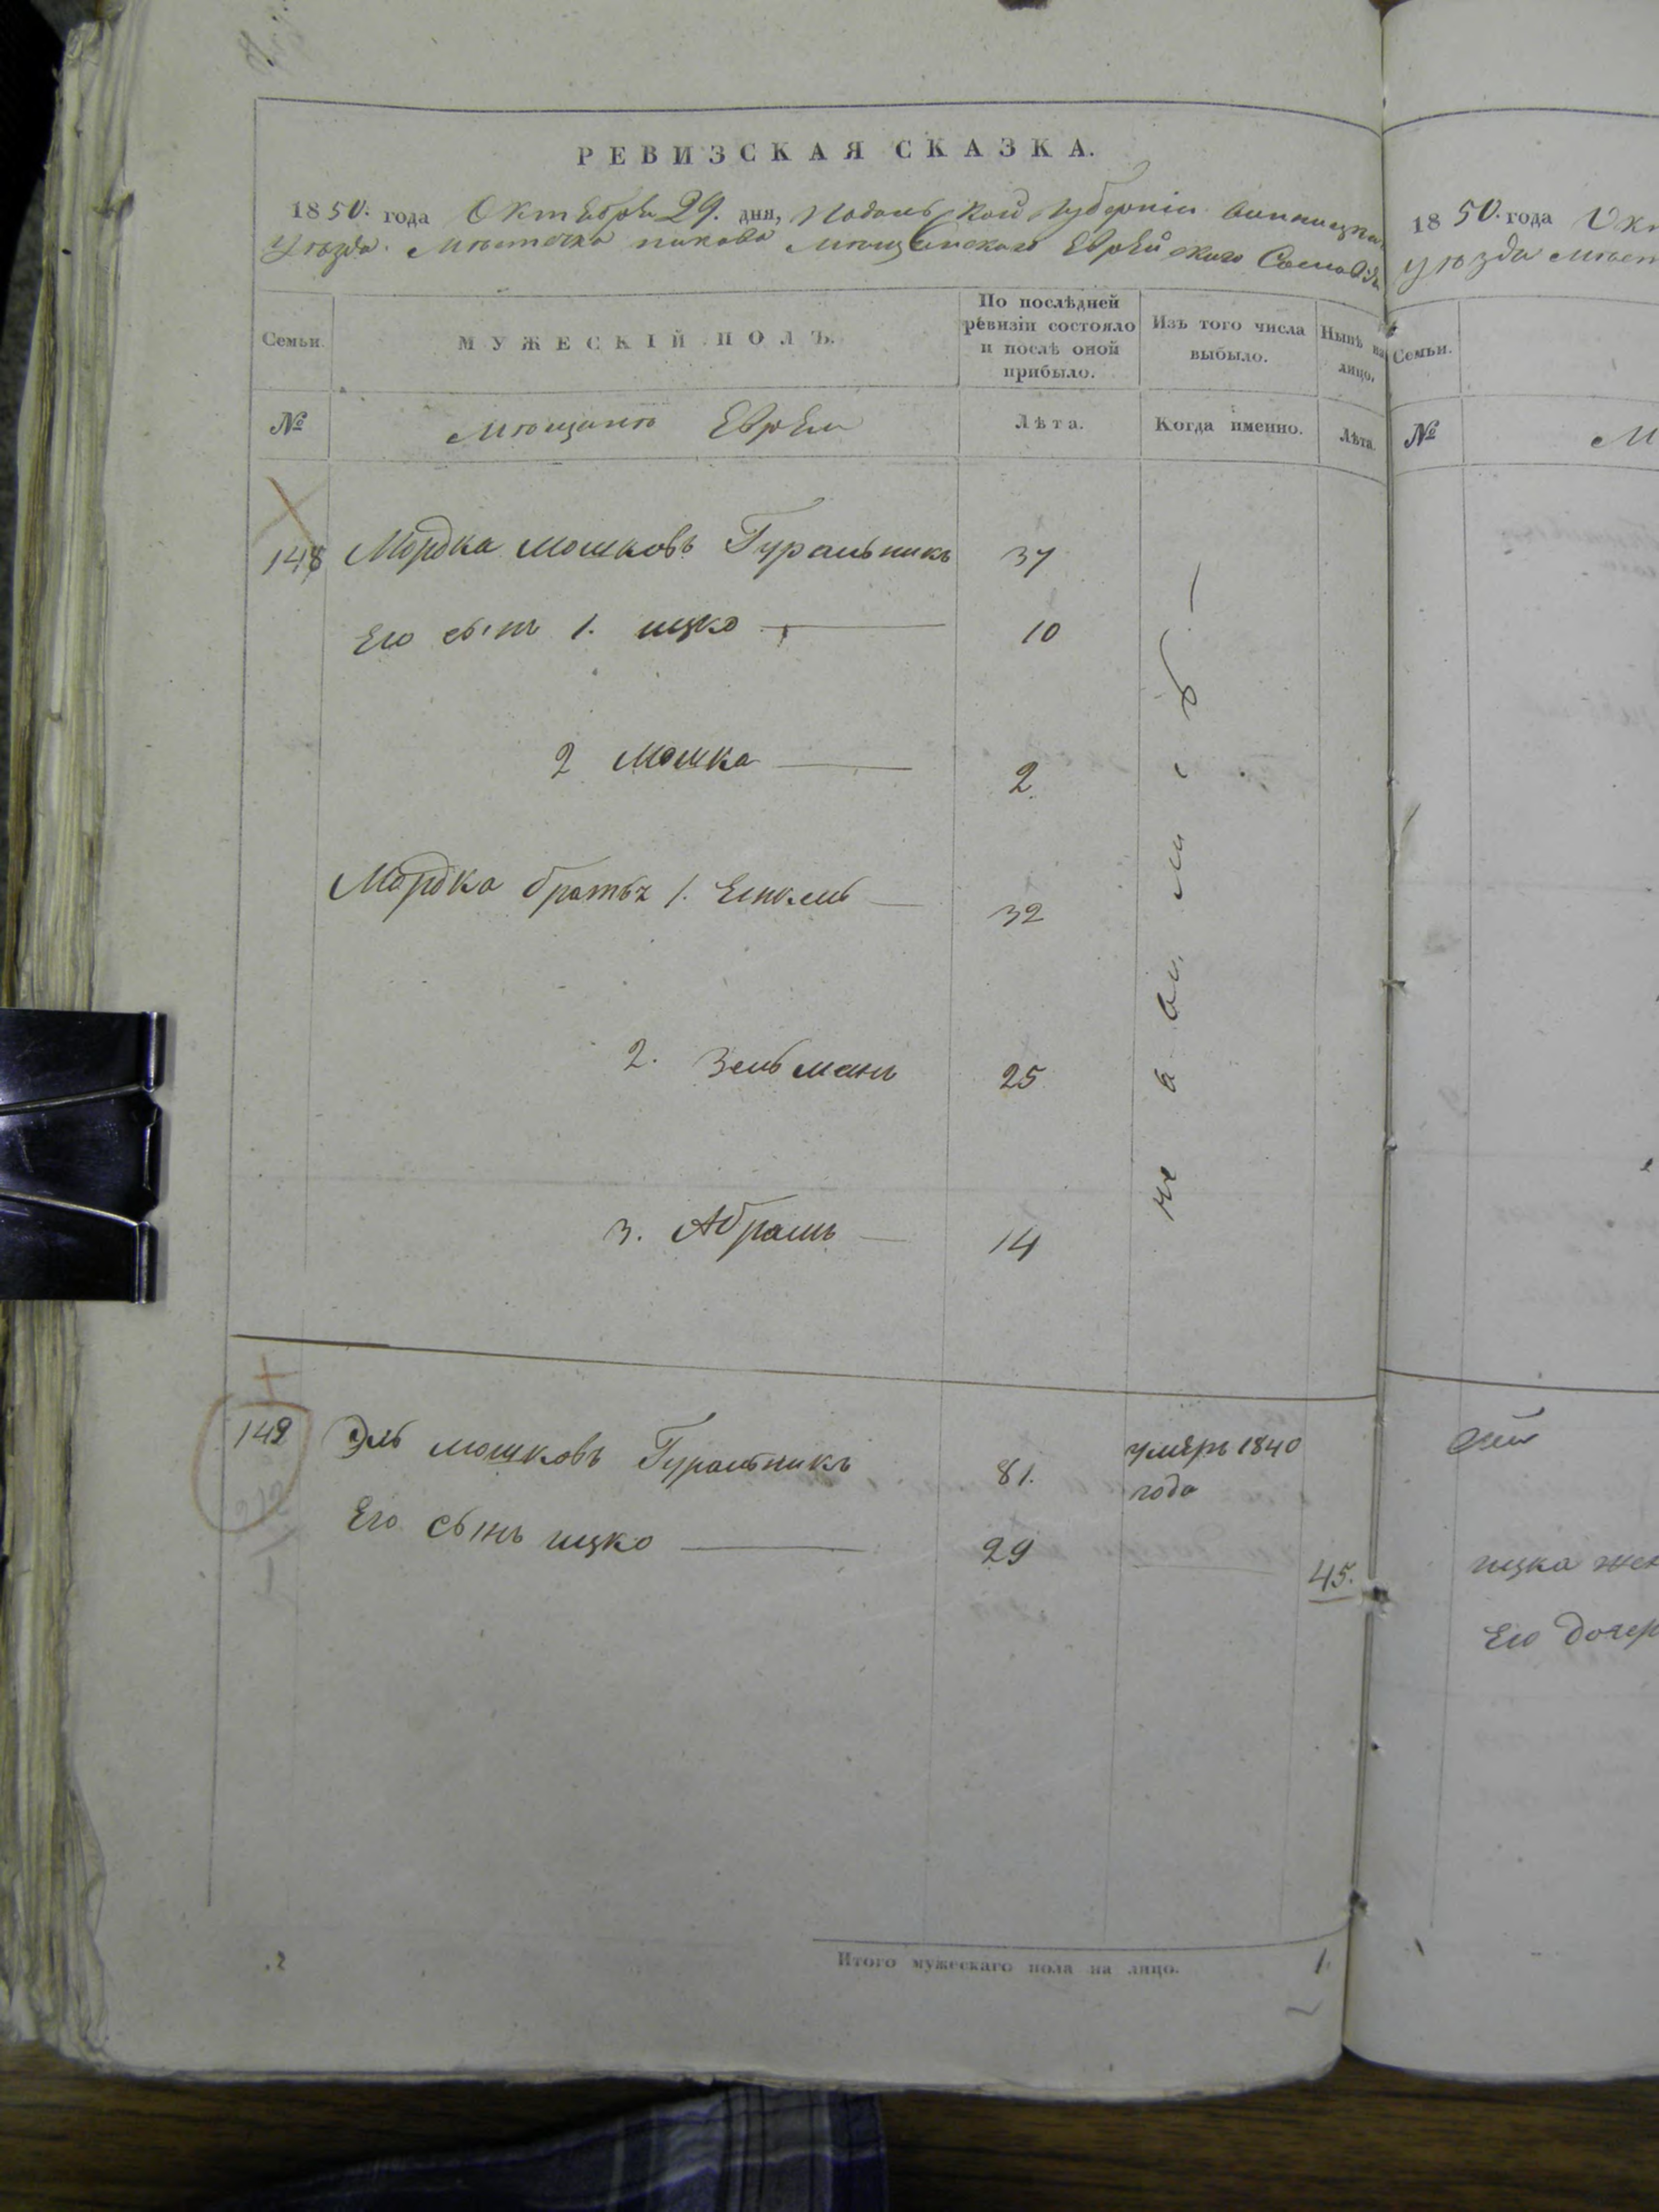 РЕВИЗСКАЯ СКАЗКА.
1850. года Октября 29. дня, Подольской Губерніи Винницкаго
Уѣзда. Мѣстечка Пикова Мѣщанскаго Еврейскаго Сословія
Семьи. МУЖЕСКІЙ ПОЛЪ. По послѣдней ревизіи состояло и послѣ оной прибыло. Изъ того числа выбыло. Нынѣ на лицо.
№ Мѣщанѣ Евреи Лѣта. Когда именно. Лѣта.
148 Мордка Мошковъ Гуральникъ 37
Его сынъ 1. ицко 10
2 Мошка 2.
Мордка братья 1. Енкель 32
2. Зельманъ 25
3. Абрамъ 14
149 Эль мошковъ Гуральникъ 81. умеръ 1840
года
Его сынъ ицко 29 45.
Итого мужескаго пола на лицо. 1.
1850. года Ок
уѣзда мѣст
Семьи.
№ М
ицка жен
Его дочер